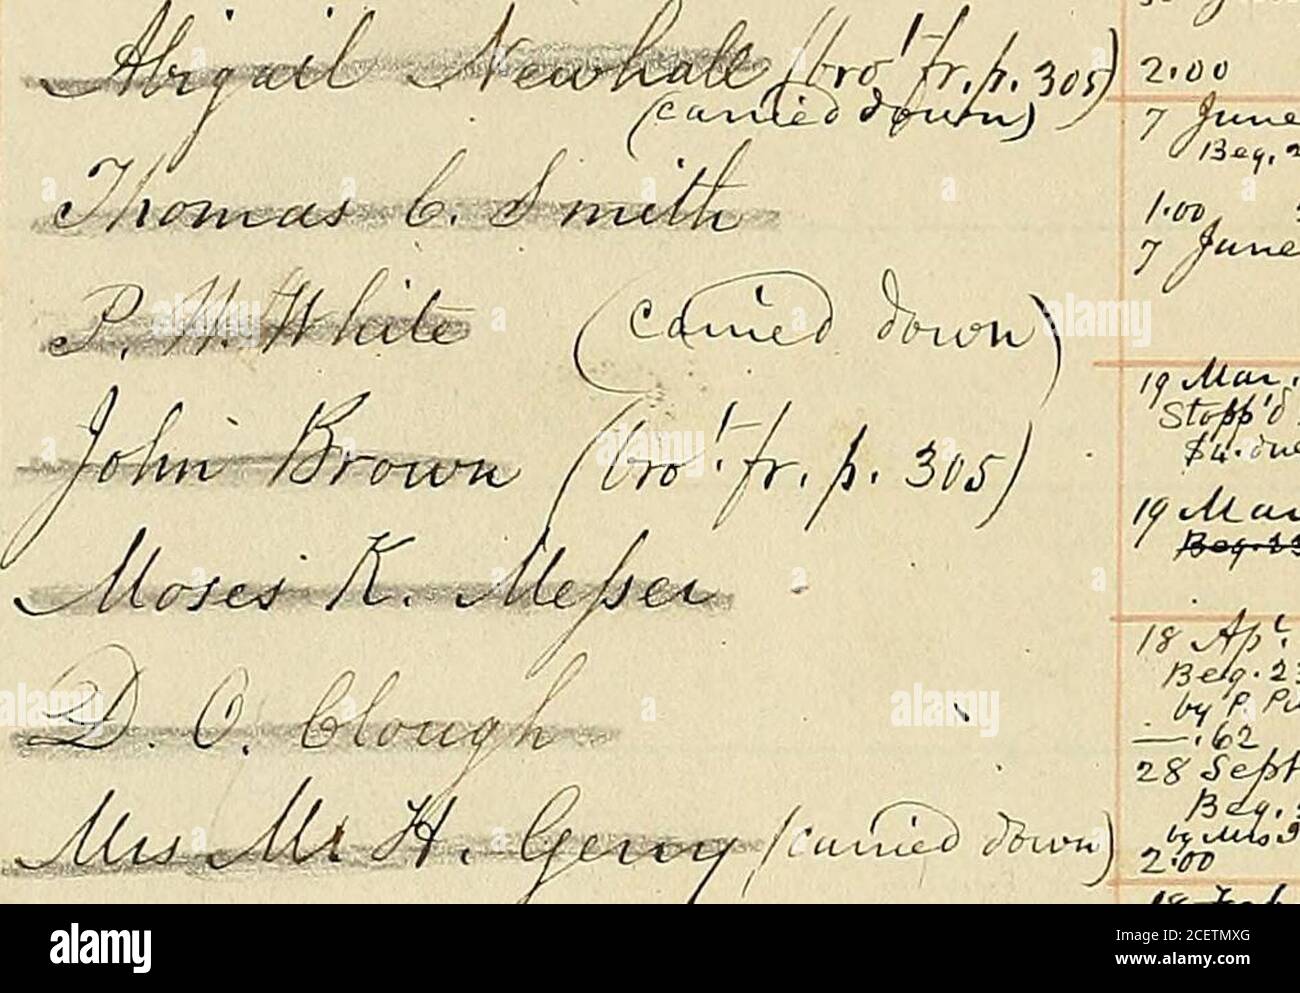 Abigail Newhall (bro't fr. p. 305)
(carried down)
Thomas C. Smith
P. W. White (carried down)
John Brown (bro't fr. p. 305)
Moses K. Messer
D. O. Clough
Mrs M. H. Gerry (carried down)
2.00
7 June
Beg. 2
1.00
7 June
19 Mar.
Stopp'd
$4. due
19 Mar
Beg. 23
18 Apl.
Beg. 23
by P.
.62
28 Sept
Beg.
by Mrs
2.00
18 Feb
alamy
Image ID: 2CETMXG
www.alamy.com